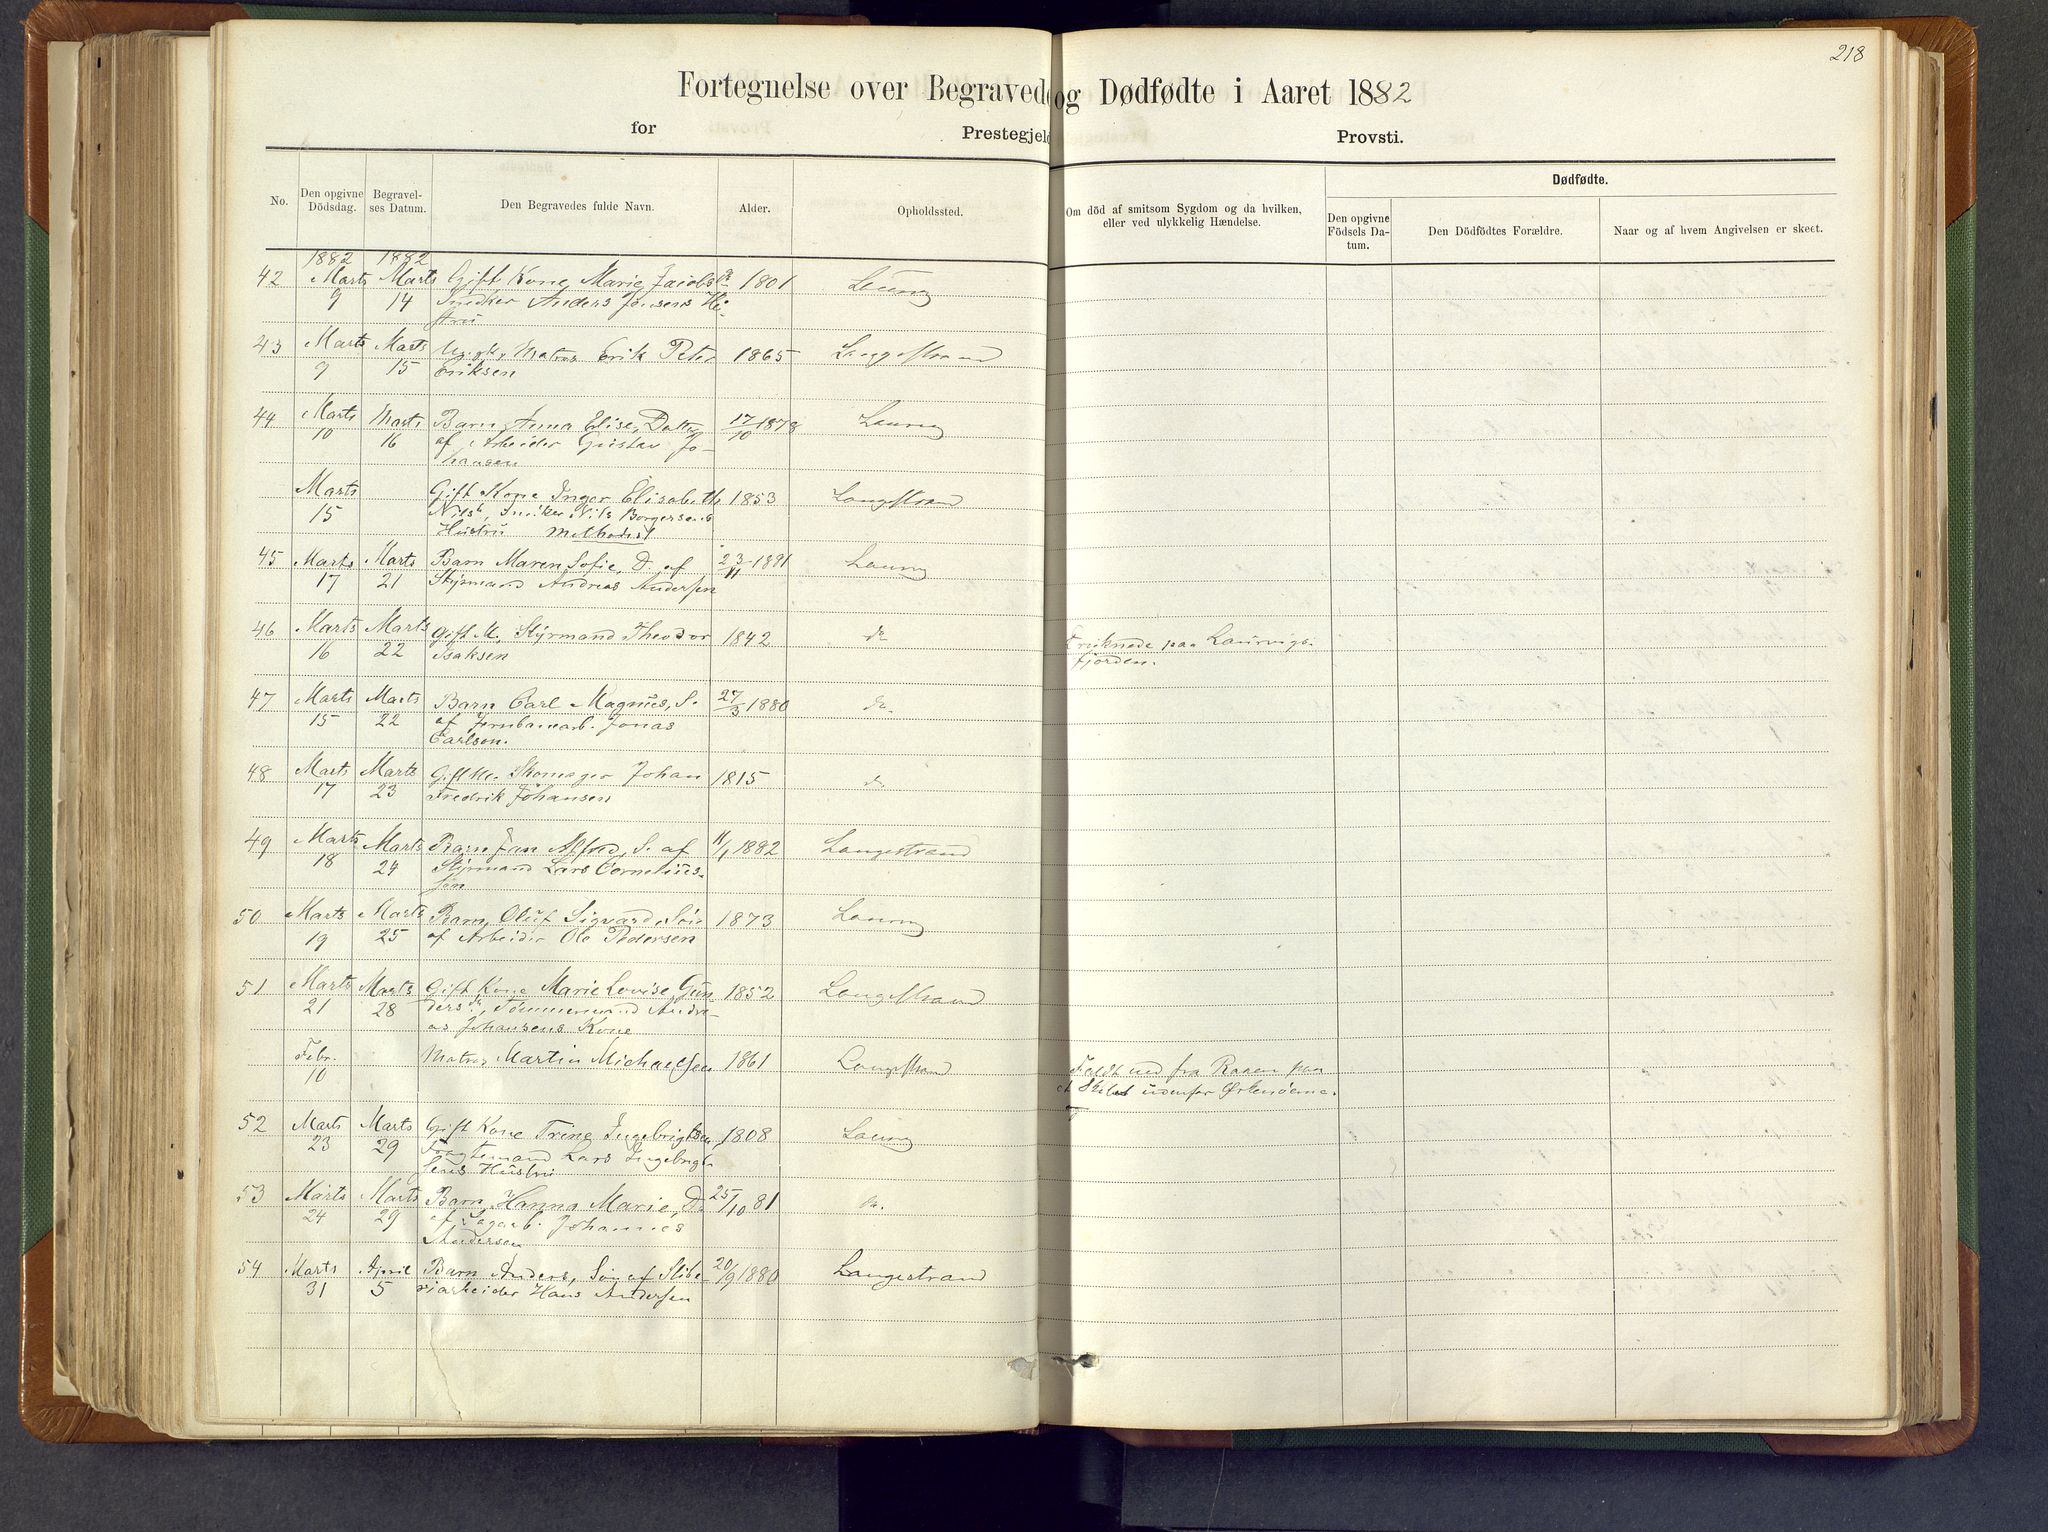 218
Fortegnelse over Begravede og Dødfødte i Aaret 1882
for Prestegjeld Provsti.
No. Den opgivne Dödsdag. Begravelses Datum. Den Begravedes fulde Navn. Alder. Opholdssted. Om död af smitsom Sygdom og da hvilken, eller ved ulykkelig Hændelse. Dødfødte.
Den opgivne Födsels Datum. Den Dödfödtes Forældre. Naar og af hvem Angivelsen er skeet.
1882 1882
42 Marts Marts Gift Kone Marie Jacobsdr 1801 Laurv
9 14 Snedker Anders Jensens Hu-
stru
43 Marts Marts Matros Erik Peter 1865 Langgestrand
9 15 Eriksen
44 Marts Marts Barn Anna Elise, Datter 17/10 1878 Laurv
10 16 af Arbeider Gustav Jo-
hansen
Marts Gift Kone Inger Elisabeth 1853 Langestrand
15 Nils Borgersens
Hustru Methodist
45 Marts Marts Barn Maren Sofie, D. af 23/11 1881 Laurv
17 21 Styrmand Andreas Andersen
46 Marts Marts Gift M. Styrmand Theodor 1842 do Druknede paa Laurvigs-
16 22 Isaksen fjorden.
47 Marts Marts Barn Carl Magnus, S. 27/3 1880 do
15 22 af Jernbanearb. Jonas
Carlson.
48 Marts Marts Gift M. Skomager Johan 1815 do
17 23 Fredrik Johansen
49 Marts Marts Barn Jan Alfred, S. af 11/1 1882 Langestrand
18 24 Styrmand Lars Cornelius-
sen
50 Marts Marts Barn Oluf Sigvard, Søn 1873 Laurv
19 25 af Arbeider Ole Pedersen
51 Marts Marts Gift Kone Marie Lovise Gun- 1852 Langestrand
21 28 dersdr, Tømmermand Andre-
as Johansens Kone
Febr. Matros Martin Michaelsen 1861 Langestrand Faldt ned fra Raaen paa
10 et Skib udenfor Ørkenøerne.
52 Marts Marts Gift Kone Trine Ingebrigtsen 1808 Laurv
23 29 Lars Ingebrigt-
sens Hustru
53 Marts Marts Barn Hanna Marie, D. 25/10 81 do.
24 29 af Sagarb. Johannes
Andersen
54 Marts April Barn Anders, Søn af Slibe- 20/9 1880 Langestrand
31 5 riarbeider Hans Andersen